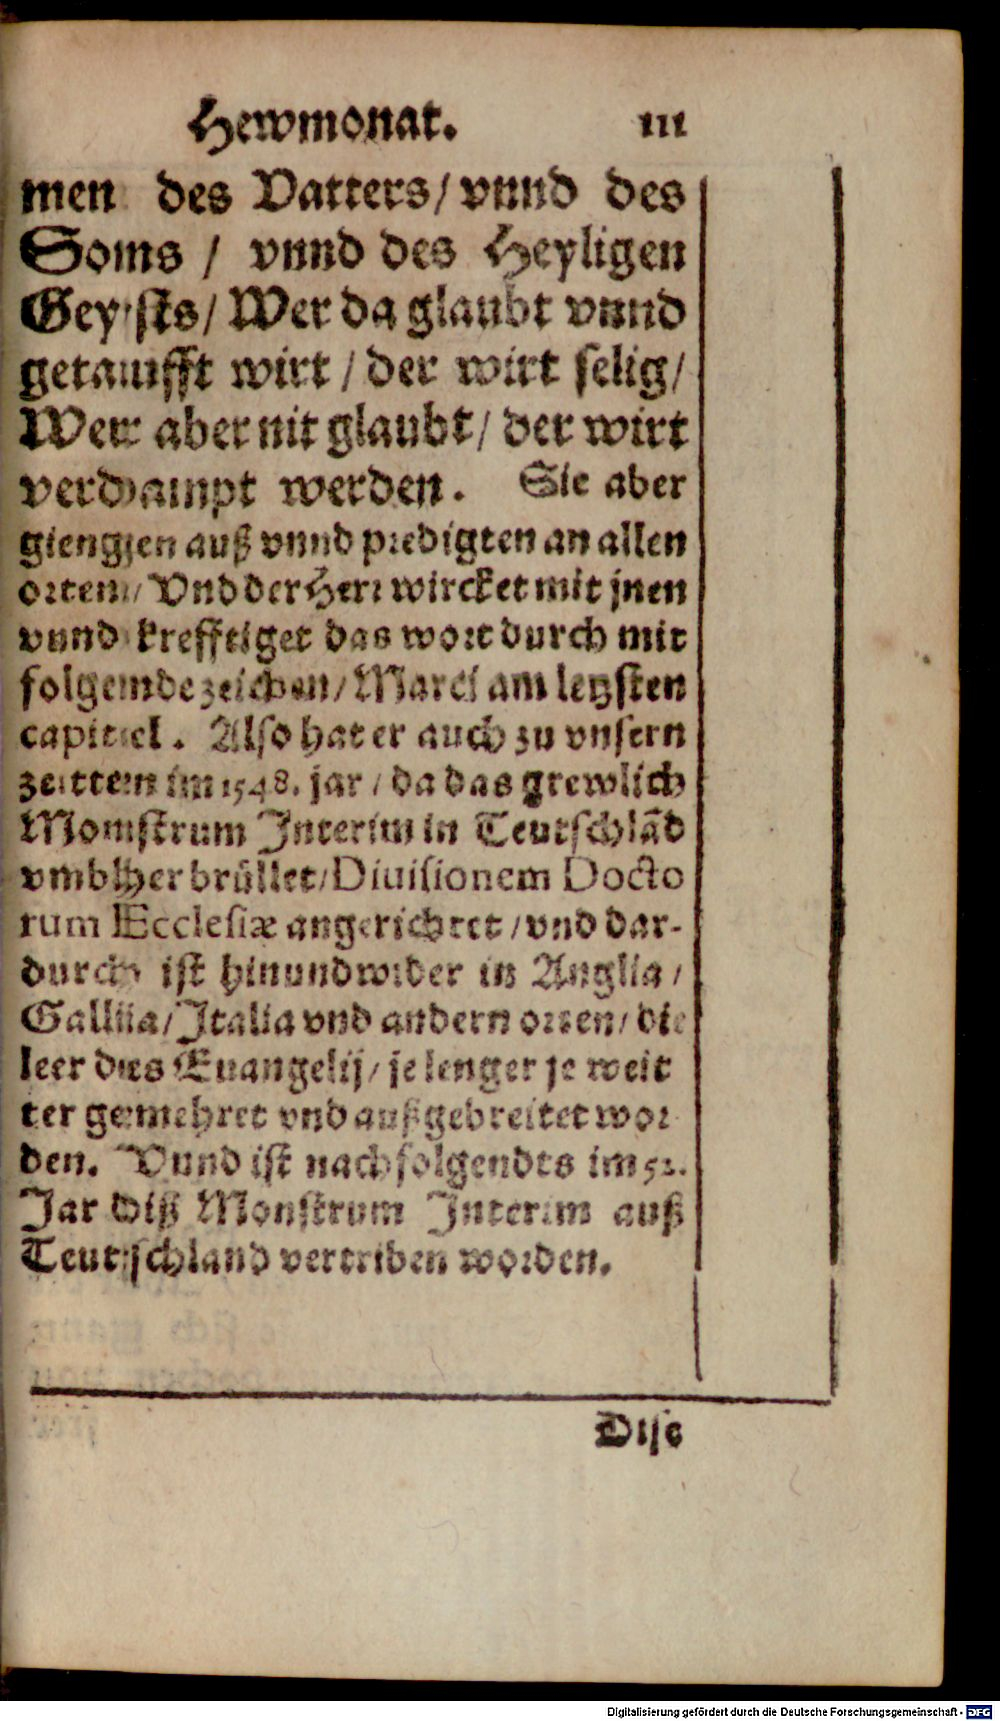 Hewmonat. 111
men des Vatters/ vnnd des
Sons / vnnd des Heyligen
Geysts/ Wer da glaubt vnnd
getaufft wirt / der wirt selig/
Wer aber nit glaubt/ der wirt
verdampt werden. Sie aber
giengen auß vnnd predigten an allen
orten/ Vnd der Herr wircket mit jnen
vnnd krefftiget das wort durch mit
folgende zeichen/ Marci am letzsten
capittel. Also hat er auch zu vnsern
zeitten im 1548. jar / da das grewlich
Monstrum Interim in Teutschlãd
vmbher brüllet/ Diuisionem Docto
rum Ecclesiæ angerichtet / vnd dar-
durch ist hinundwider in Anglia /
Gallia/ Italia vnd andern orten/ die
leer des Euangelij/ je lenger je weit
ter gemehret vnd außgebreitet wor
den. Vnnd ist nachfolgendts im 52.
Jar diß Monstrum Interim auß
Teutschland vertriben worden.
Dise
Digitalisierung gefördert durch die Deutsche Forschungsgemeinschaft - DFG